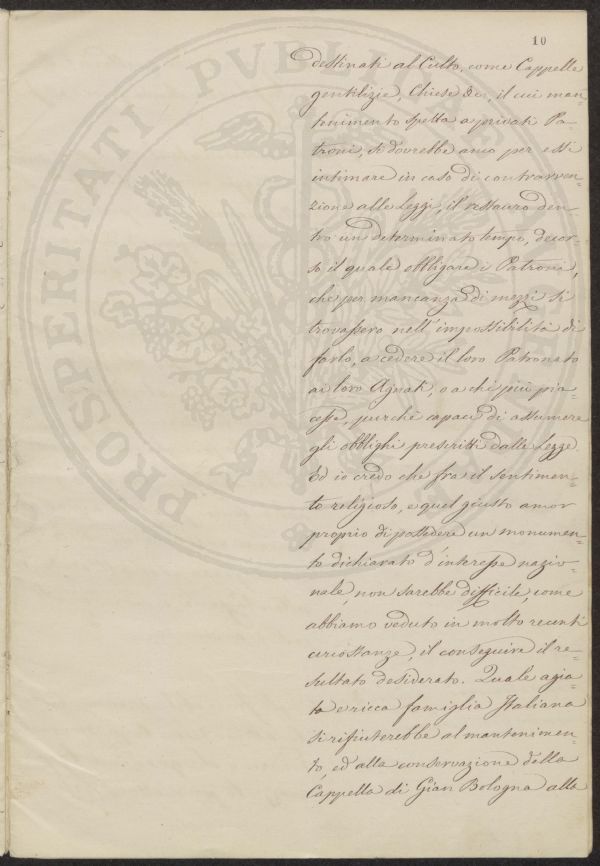 10
destinati al Culto, come Cappelle
gentilizie, Chiese &c., il cui man=
tenimento spetta a privati Pa=
troni, si dovrebbe anco per essi
intimare in caso di contravven=
zione alle Leggi, il restauro den=
tro un determinato tempo, decor=
so il quale obbligare i Patroni,
che per mancanza di mezzi si
trovassero nell'impossibilità di
farlo, a cedere il loro Patronato
ai loro Agnati, o a chi più pia=
cesse, purchè capaci di assumere
gli obblighi prescritti dalle Legge.
Ed io credo che fra il sentimen=
to religioso, e quel giusto amor
proprio di possedere un monumen=
to dichiarato d'interesse nazio=
nale, non sarebbe difficile, come
abbiamo veduto in molte recenti
circostanze, il conseguire il re=
sultato desiderato. Quale agia=
ta e ricca famiglia Italiana
si rifiuterebbe al mantenimen=
to, ed alla conservazione della
Cappella di Gian Bologna alla
PROSPERITATI PVBLI